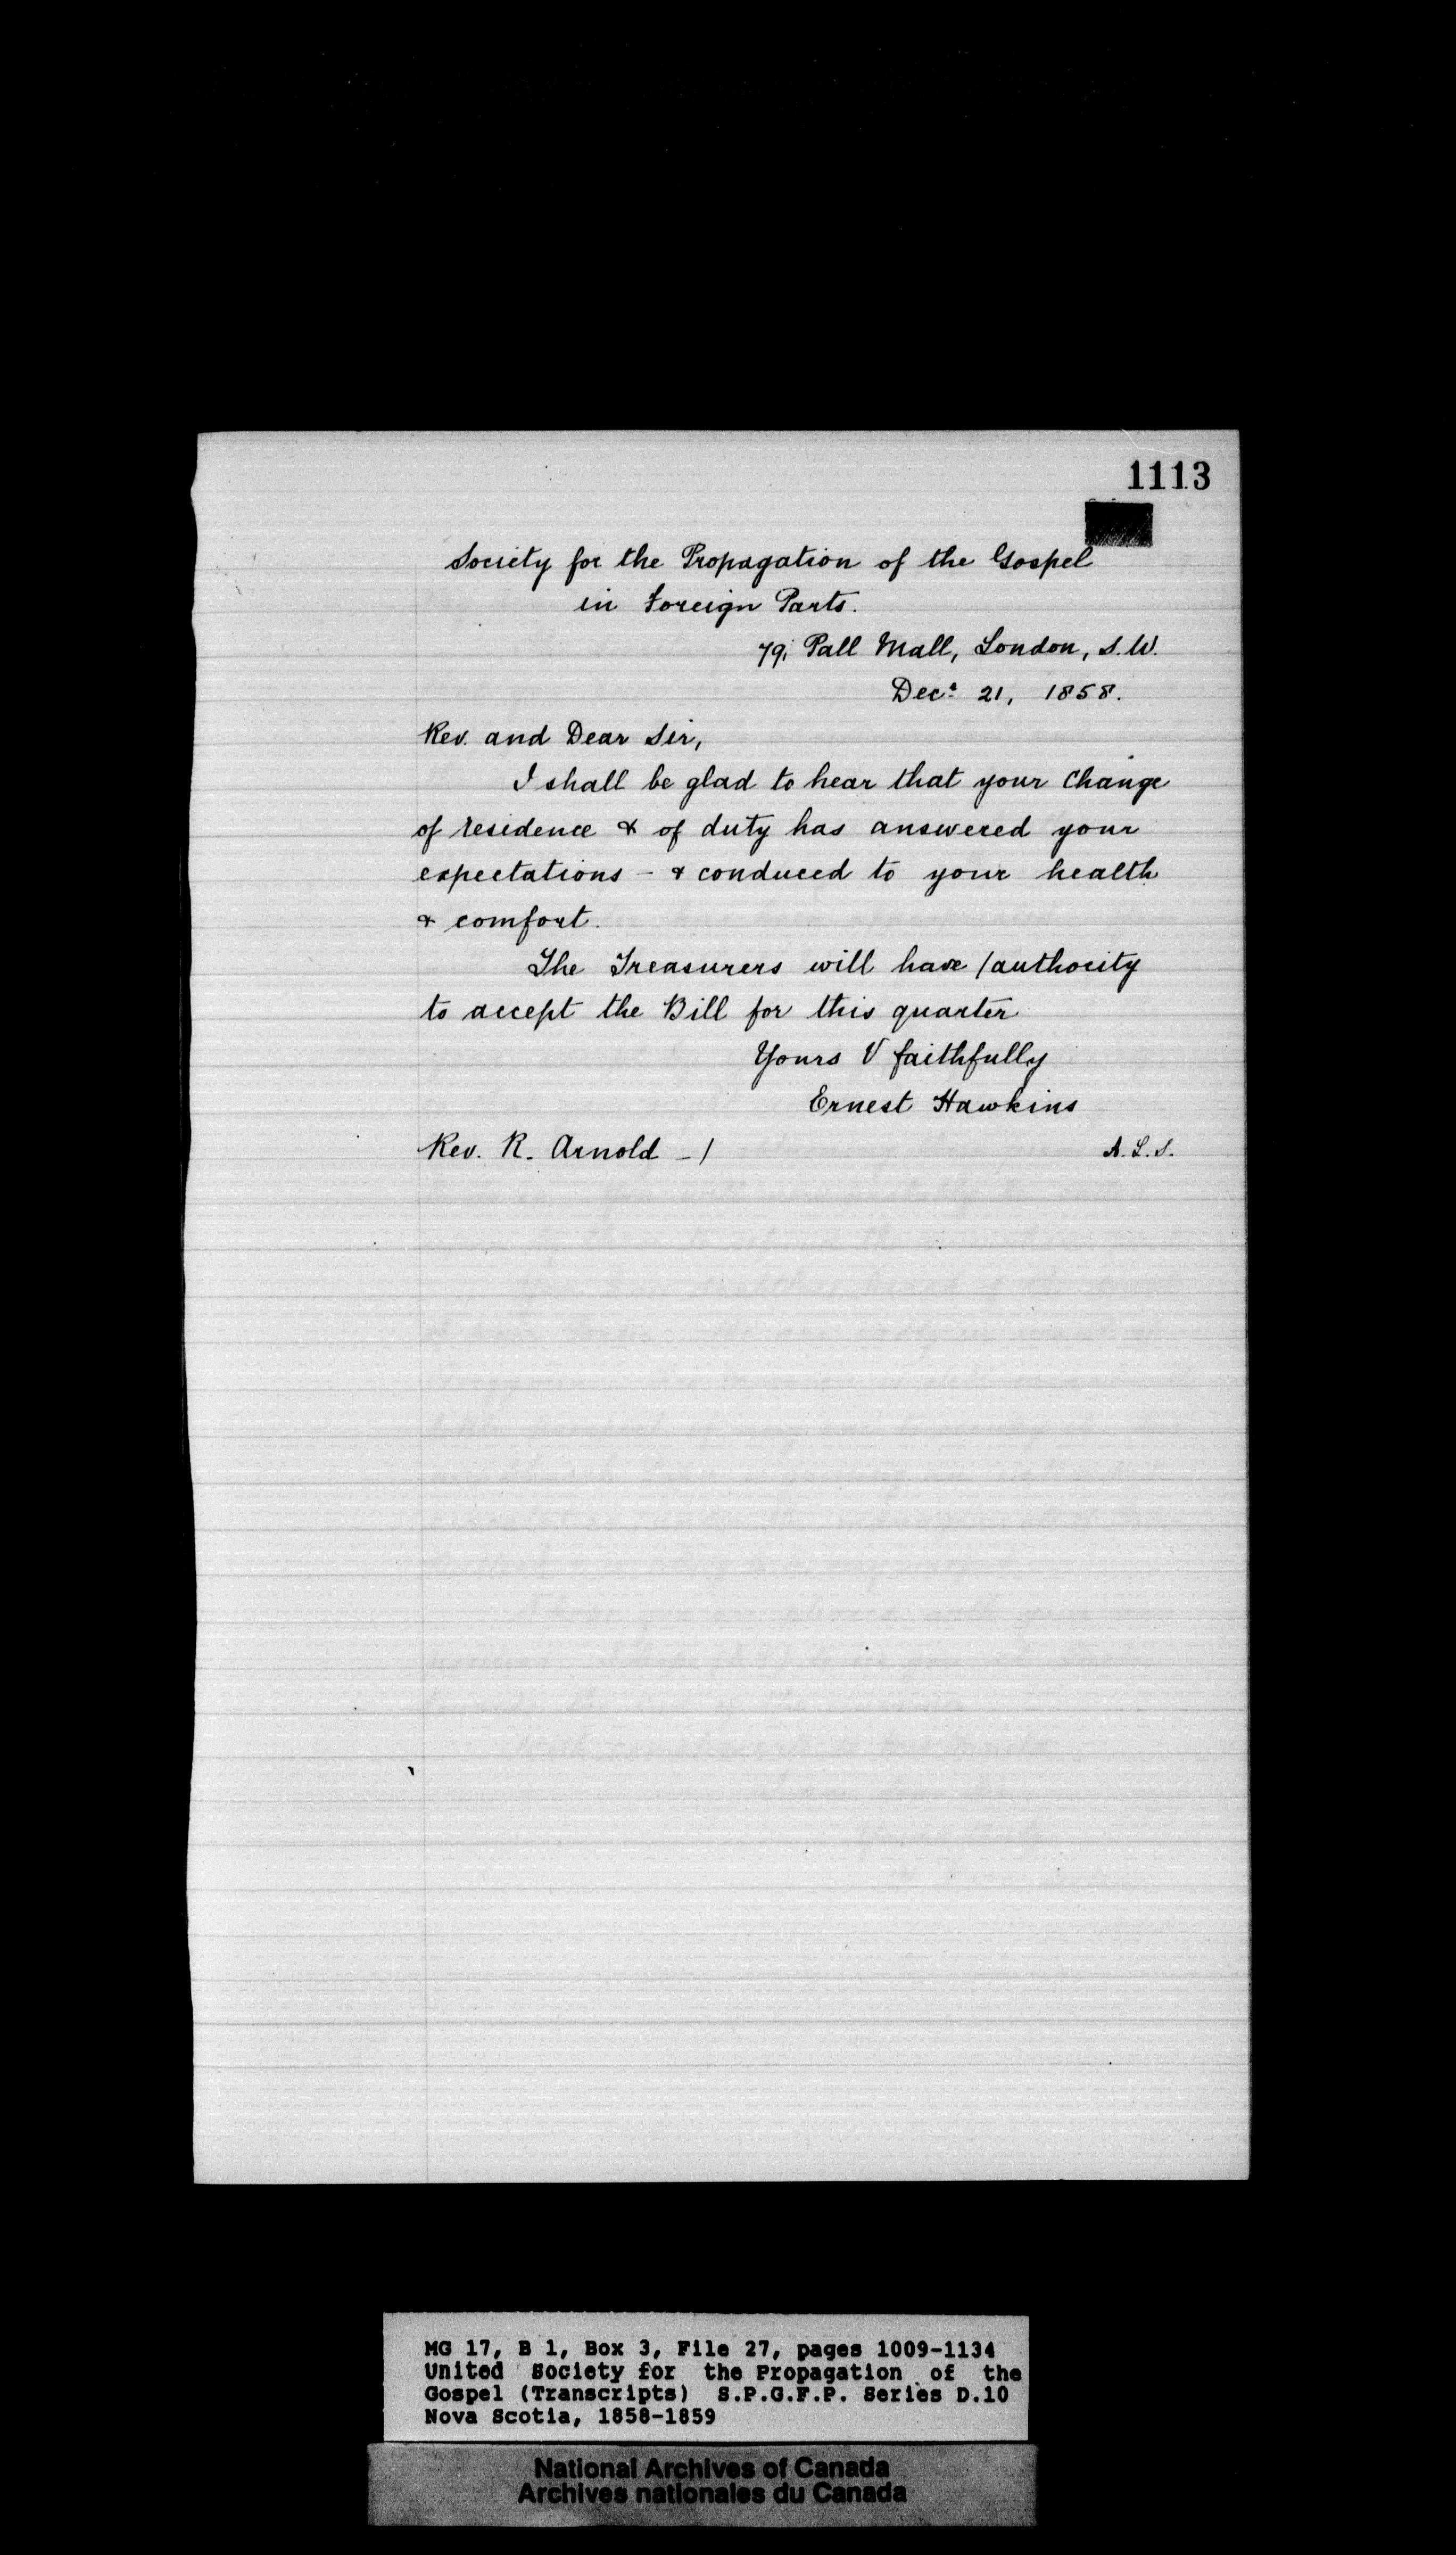 1113
Society for the Propagation of the Gospel
in Foreign Parts.
79, Pall Mall, London, S.W.
Decr. 21, 1858.
Rev. and Dear Sir,
I shall be glad to hear that your change
of residence & of duty has answered your
expectations - & conduced to your health
& comfort.
The Treasurers will have /authority
to accept the Bill for this quarter
Yours V faithfully
Ernest Hawkins
Rev. R. Arnold - /
A.L.S.
MG 17, B 1, Box 3, File 27, pages 1009-1134
United Society for the Propagation of the
Gospel (Transcripts) S.P.G.F.P. Series D.10
Nova Scotia, 1858-1859
National Archives of Canada
Archives nationales du Canada